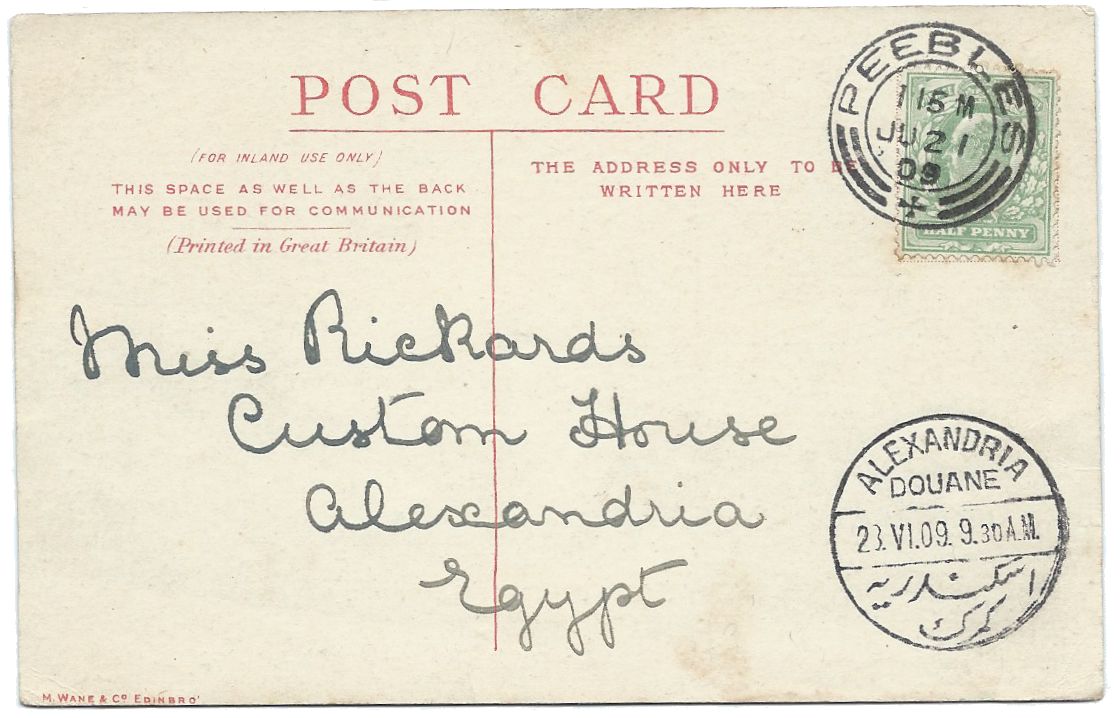 POST CARD
(FOR INLAND USE ONLY)
THIS SPACE AS WELL AS THE BACK
MAY BE USED FOR COMMUNICATION
(Printed in Great Britain)
THE ADDRESS ONLY TO BE
WRITTEN HERE
PEEBLES
115 M
JU 21
09
HALF PENNY
Miss Rickards
Custom House
Alexandria
Egypt
ALEXANDRIA
DOUANE
28.VI.09. 9.30 A.M.
اسكندريه
كمرك
M. WANE & CO EDINBRO'